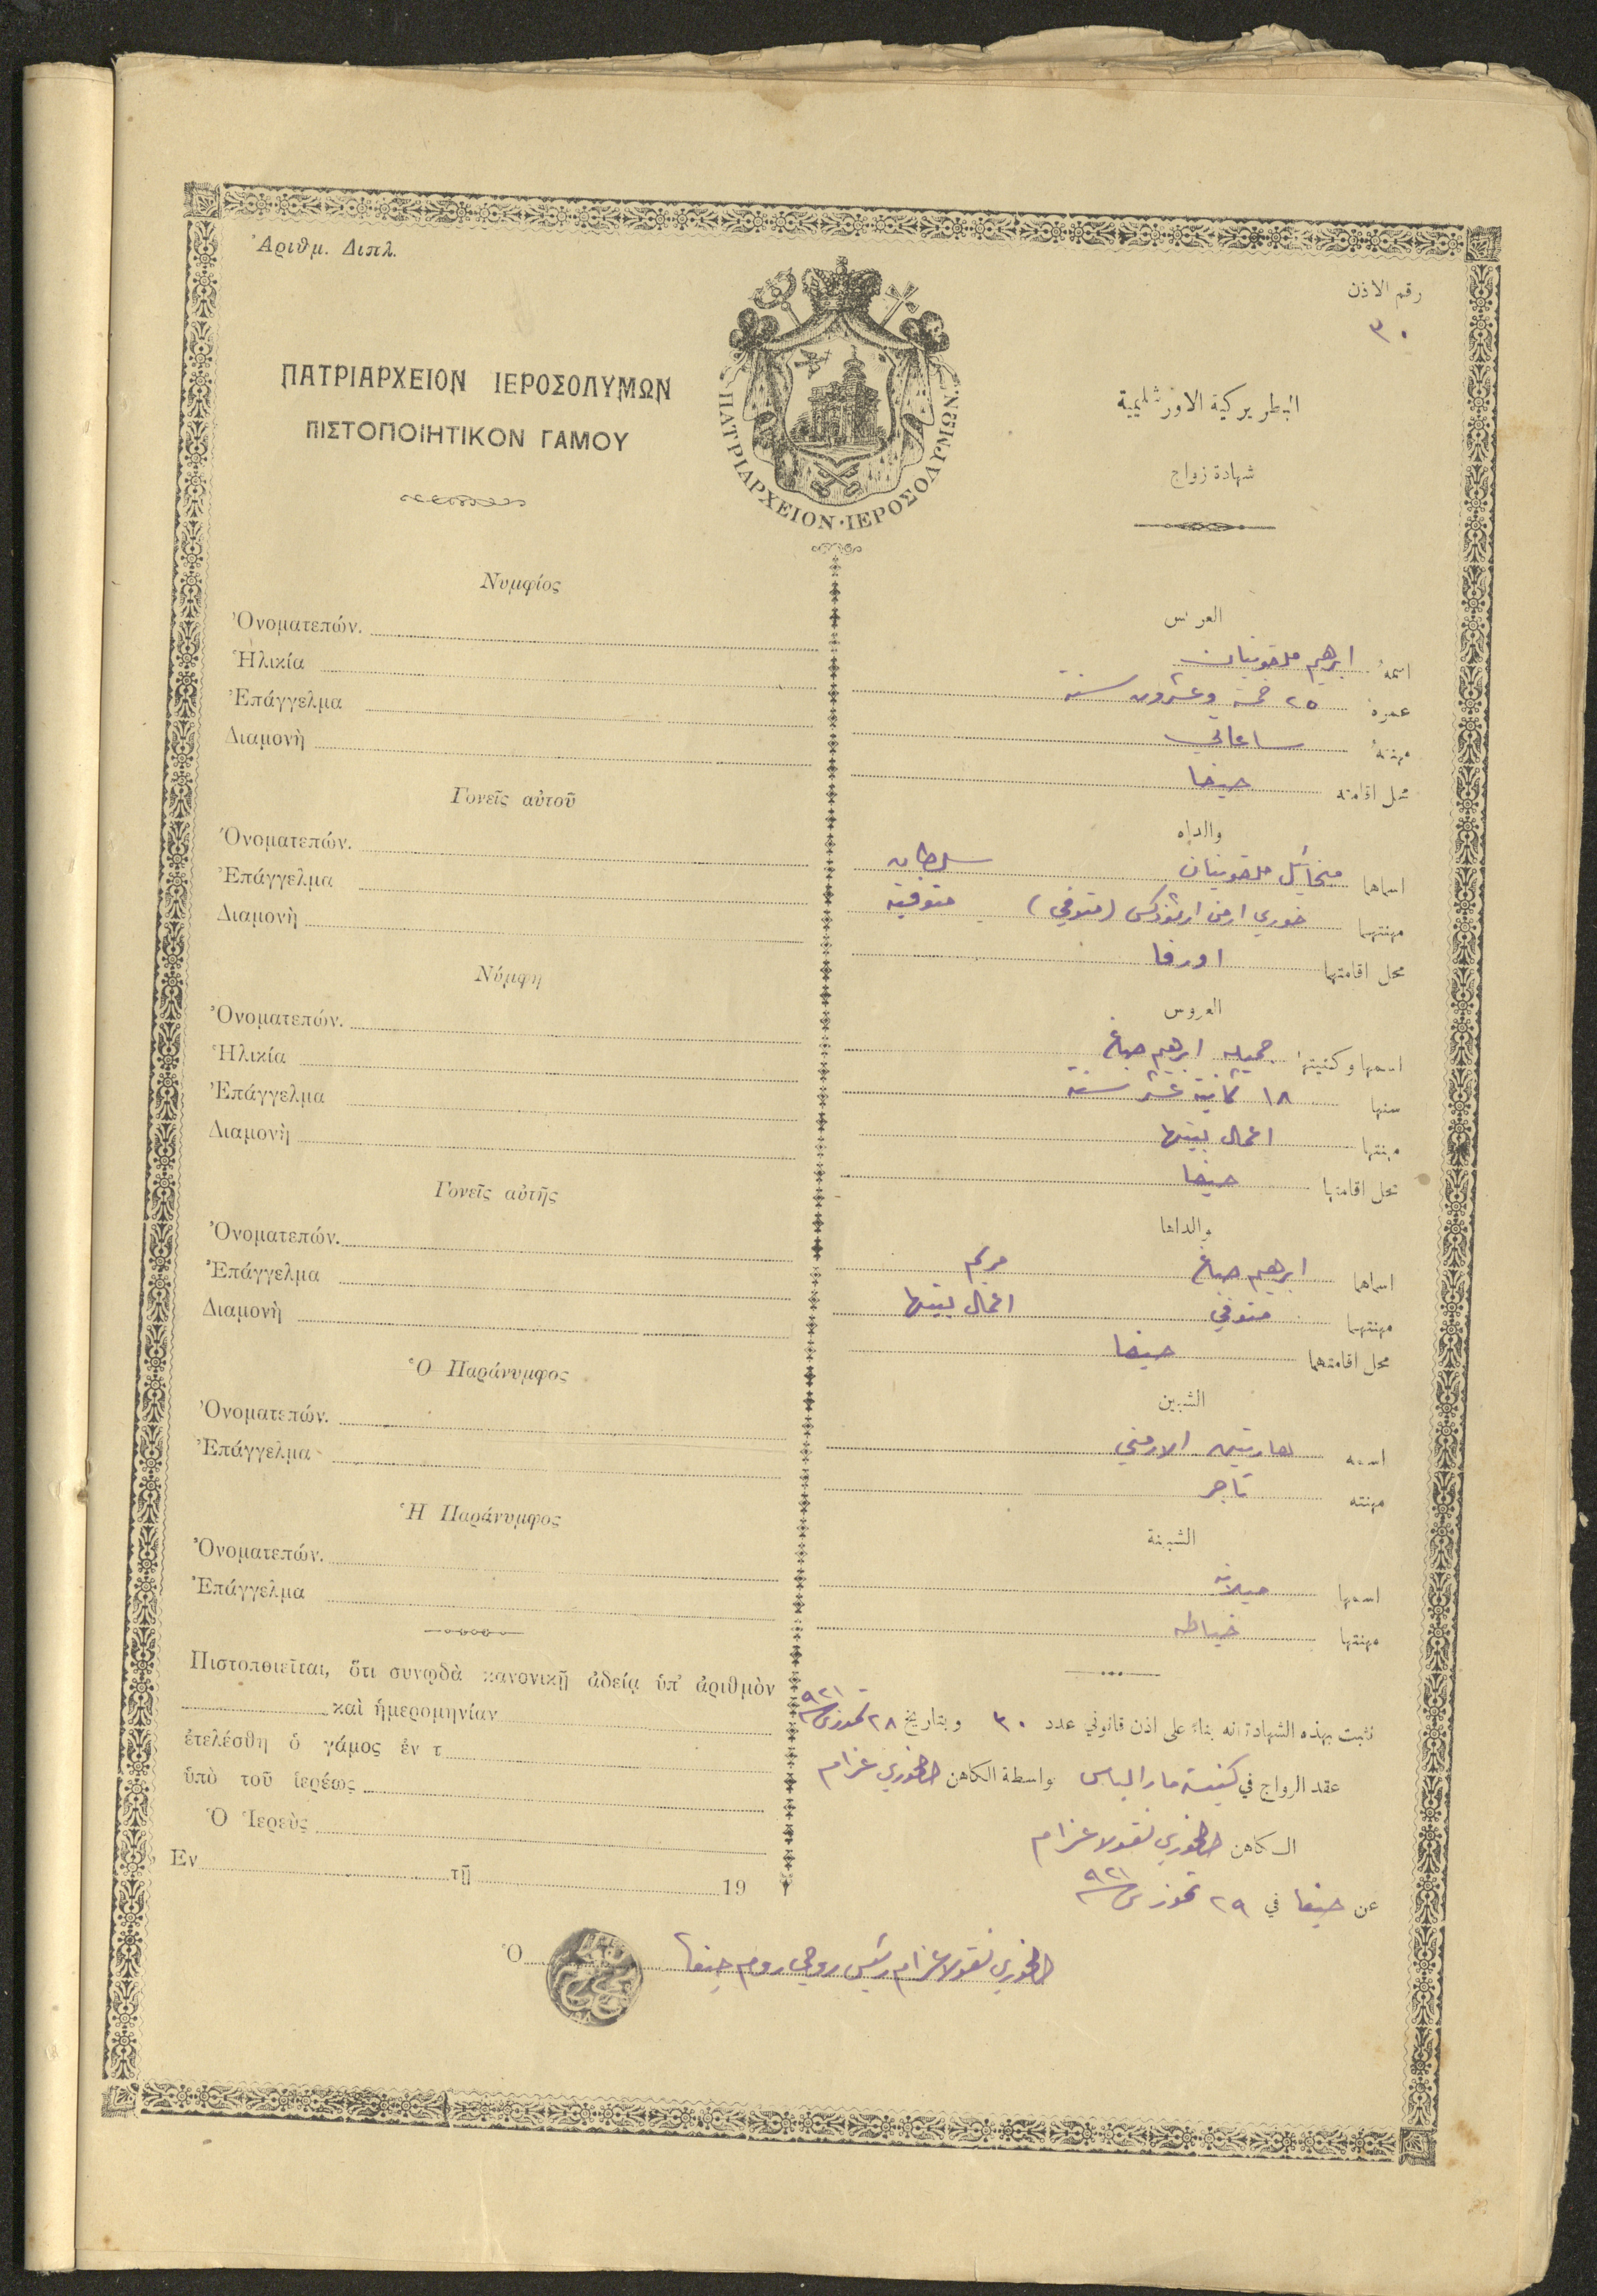 Ἀριθμ. Διπλ.
رقم الاذن
٣٠
ΠΑΤΡΙΑΡΧΕΙΟΝ ΙΕΡΟΣΟΛΥΜΩΝ
ΠΙΣΤΟΠΟΙΗΤΙΚΟΝ ΓΑΜΟΥ
ΠΑΤΡΙΑΡΧΕΙΟΝ·ΙΕΡΟΣΟΛΥΜΩΝ
البطريركية الاورشليمية
شهادة زواج
Νυμφίος
Ὀνοματεπών.
Ἡλικία
Ἐπάγγελμα
Διαμονὴ
Γονεῖς αὐτοῦ
Ὀνοματεπών.
Ἐπάγγελμα
Διαμονὴ
Νύμφη
Ὀνοματεπών.
Ἡλικία
Ἐπάγγελμα
Διαμονὴ
Γονεῖς αὐτῆς
Ὀνοματεπών.
Ἐπάγγελμα
Διαμονὴ
Ὁ Παράνυμφος
Ὀνοματεπών.
Ἐπάγγελμα
Ἡ Παράνυμφος
Ὀνοματεπών.
Ἐπάγγελμα
Πιστοποιεῖται, ὅτι συνῳδὰ κανονικῇ ἀδείᾳ ὑπ' ἀριθμὸν
καὶ ἡμερομηνίαν
ἐτελέσθη ὁ γάμος ἐν τ
ὑπὸ τοῦ ἱερέως
Ὁ Ἱερεὺς
Εν τῇ 19
العريس
اسمهُ ابرهيم ملقونيان
عمره ٢٥ خمسة وعشرون سنة
مهنتهُ ساعاتي
محل اقامته حيفا
والداه
اسماهما ميخائيل ملقونيان سلطانه
مهنتهما خوري ارمن ارثوذكس (متوفي) متوفية
محل اقامتهما اورفا
العروس
اسمها وكنيتها جميله ابرهيم صباغ
سنها ١٨ ثمانية عشر سنة
مهنتها اعمال بيتها
محل اقامتها حيفا
والداها
اسماهما ابرهيم صباغ مريم
مهنتهما متوفي اعمال بيتها
محل اقامتهما حيفا
الشبين
اسمه الارمني
مهنته تاجر
الشبينة
اسمها ميلانه
مهنتها خياطه
نثبت بهذه الشهادة انه بناءً على اذن قانوني عدد ٣٠ وبتاريخ ٢٨ تموز سنة ٩٢١
عقد الزواج في كنيسة مار الياس بواسطة الكاهن الخوري عزام
الكاهن الخوري نقولا عزام
عن حيفا في ٢٩ تموز سنة ٩٢١
Ὁ الخوري نقولا عزام رئيس روحي روم حيفا